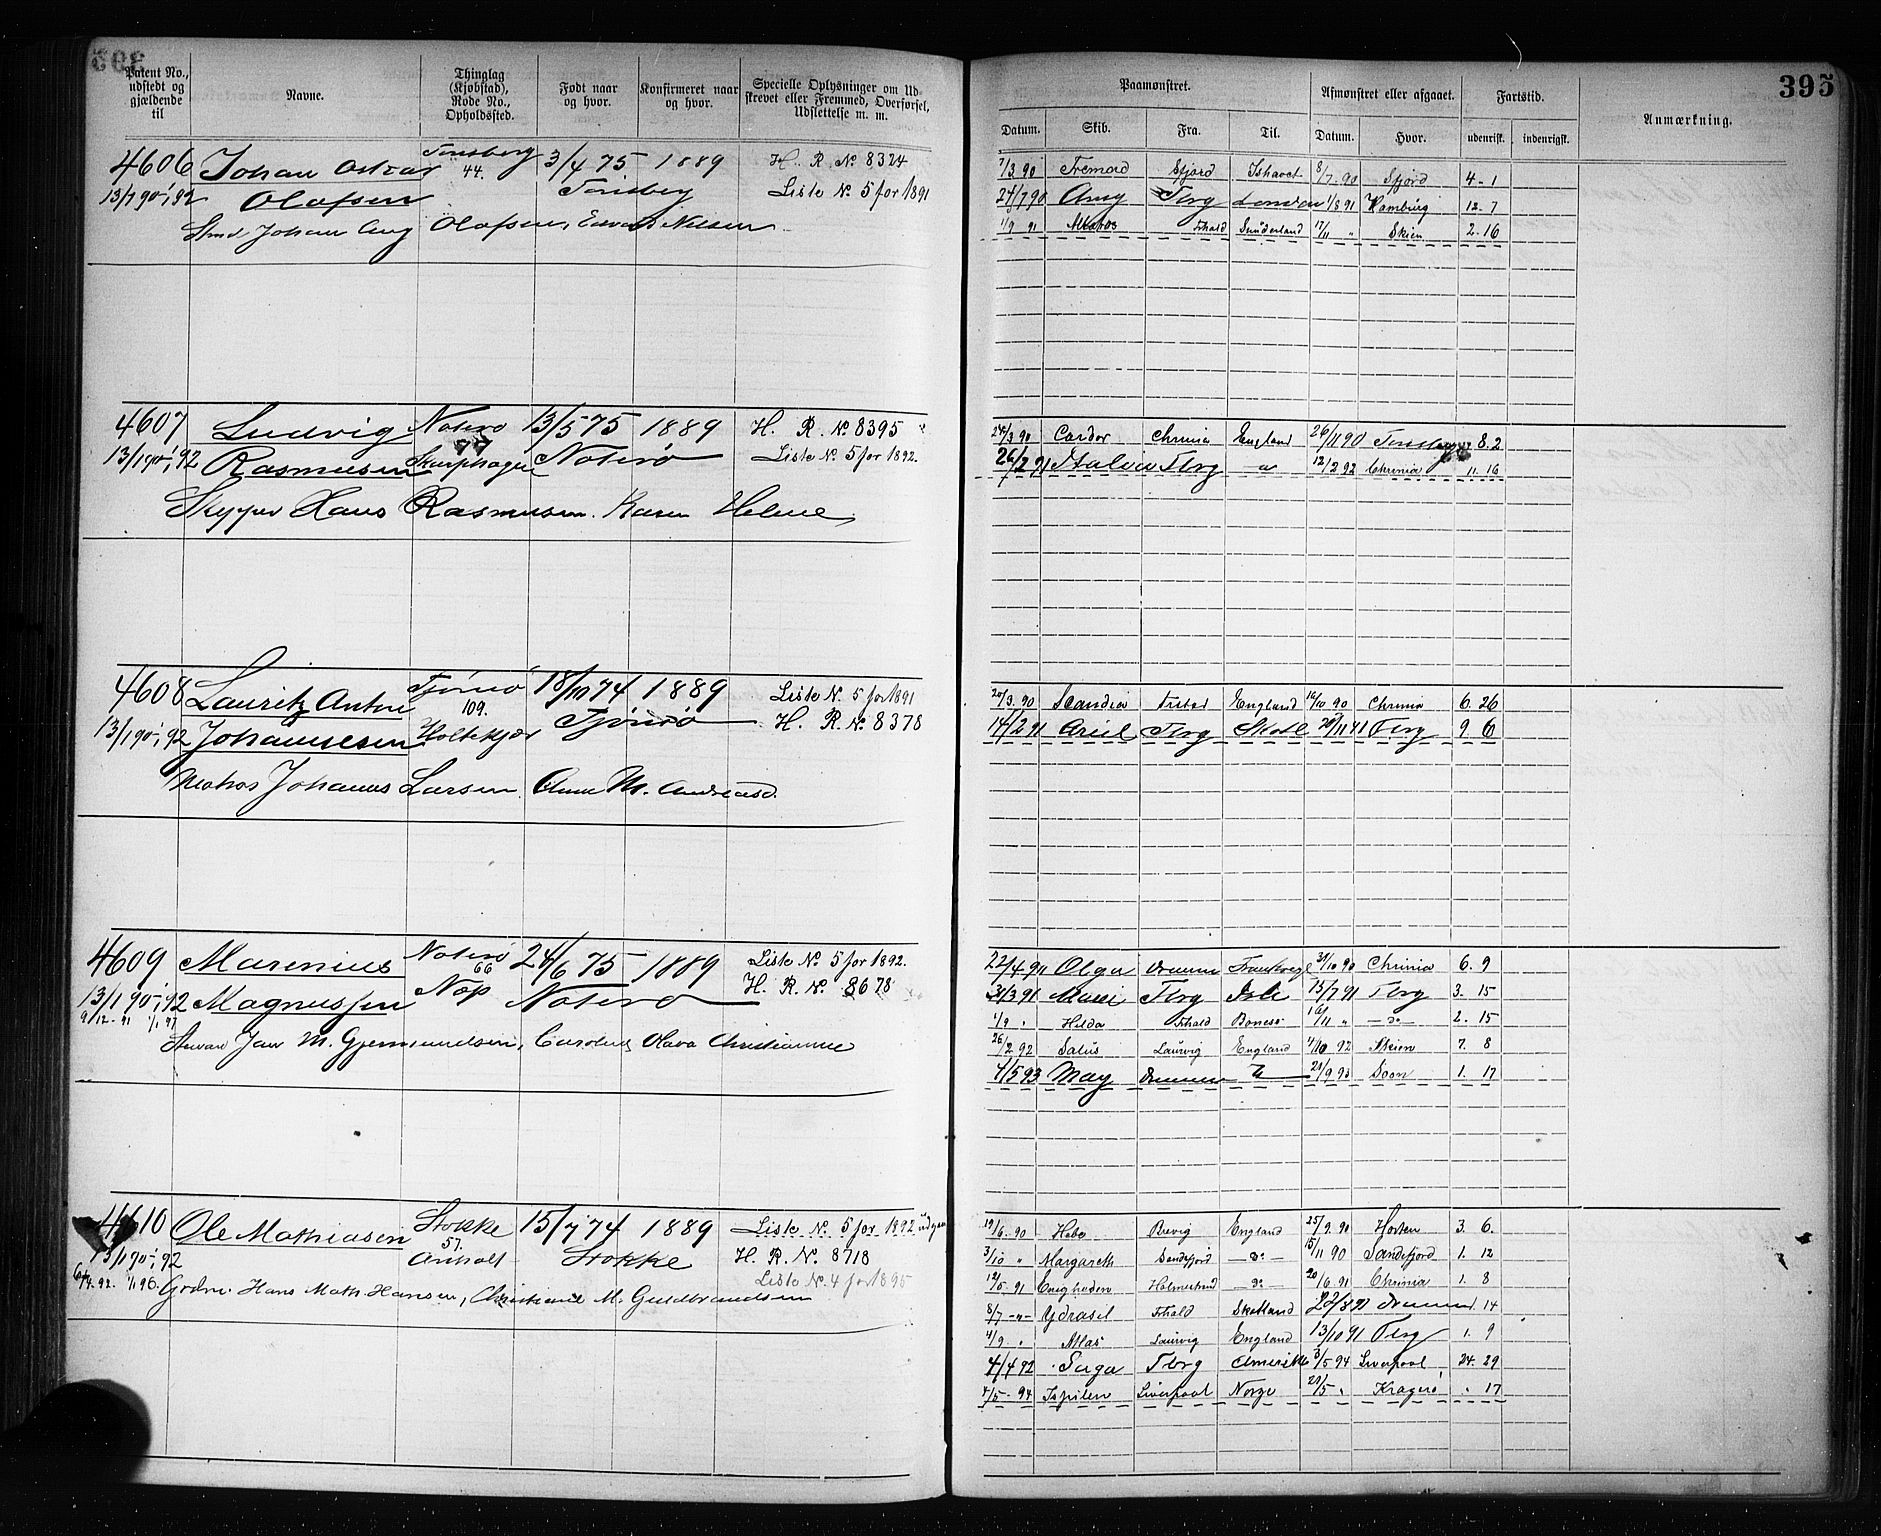 395
Patent No., udstedt og gjældende til
Navne.
Thinglag (Kjøbstad), Rode No., Opholdssted.
Født naar og hvor.
Konfirmeret naar og hvor.
Specielle Oplysninger om Udskrevet eller Fremmed, Overførsel, Udslettelse m. m.
Paamønstret.
Afmønstret eller afgaaet.
Fartstid.
Anmærkning.
Datum. Skib. Fra. Til. Datum. Hvor. udenrigsk. indenrigsk.
4606 Johan Oskar Tønsberg 3/4 75 1889 H. R. No 8324
13/1 90-1/1 92 Olafsen 44. Tønsberg Liste No. 5 for 1891
Johan Aug Olafsen, Nilsen
7/3 90 Sfjord Ishavet 8/7-90 Sfjord 4-1
24/7 90 Amy Tbrg London 1/8 91 Hamburg 12-7
1/9 91 Fhald Sunderland 17/11 " Skien 2-16
4607 Ludvig Nøterø 13/5 75 1889 H. R. No 8395
13/1 90-1/1 92 Rasmusen 77 Skarphagen Nøterø Liste No. 5 for 1892.
Skypper Hans Rasmusen. Karen Helene
24/3 90 Condor Chrnia England 26/11 90 8.2
26/2 91 Tbrg " 12/2 92 Chrnia 11. 16
4608 Lauritz Anton Tjømø 18/10 74 1889 Liste No. 5 for 1891
13/1 90-1/1 92 Johannesen 109. Holtekjær Tjømø H. R. No 8378
Matros Johannes Larsen. Anne M. Andreasd.
20/3. 90 Scandia England 16/10 90 Chrnia 6. 26
14/2 91 Ariel Tbrg Skotl 20/11 91 Tbrg 9 6
4609 Marenius Nøterø 24/6 75 1889 Liste No. 5 for 1892.
13/1 90-1/1 92 Magnussen 66 Nøp Nøterø H. R. No. 8678
9/12-91 1/1 97
Jan M. Gjermundsen, Caroline Olava Christianne
22/4 90 Olga Drammen Frankrige 31/10 90 Chrnia 6. 9
31/3 91 Tbrg 15/7 91 Tbrg 3. 15
1/9 " Hilda Fhald Boness 16/11 " -do- 2. 15
26/2 92 Salus Laurvig England 4/10 92 Skien 7. 8
4/5 93 May Drammen 21/9 93 Soon 1. 17
4610 Ole Mathiasen Stokke 15/7 74 1889 Liste No. 5 for 1892
13/1 90-1/1 92 57. Anholt Stokke H. R. No. 8718
1/1 96. Hans Math. Hansen, Christiane M. Guldbrandsen Liste No. 4 for 1895
19/6. 90 Brevig England 25/9. 90 Horten 3. 6.
3/10 " Margareth Sandefjord -do- 15/11 90 Sandefjord 1. 12
12/5-91 Enigheden Holmestrand -do- 20/6 91 Chrnia 1. 8
8/7 -"- Ydrasil Fhald Skotland 22/8 91 Drammen 1. 14
4/9 " Atlas Laurvig England 13/10 91 Tbrg 1. 9
4/4 92 Saga Tbrg Amerika 3/5 94 Liverpool 24. 29
4/5-94 Ispilen Liverpool Norge 20/5 " Kragerø " 17